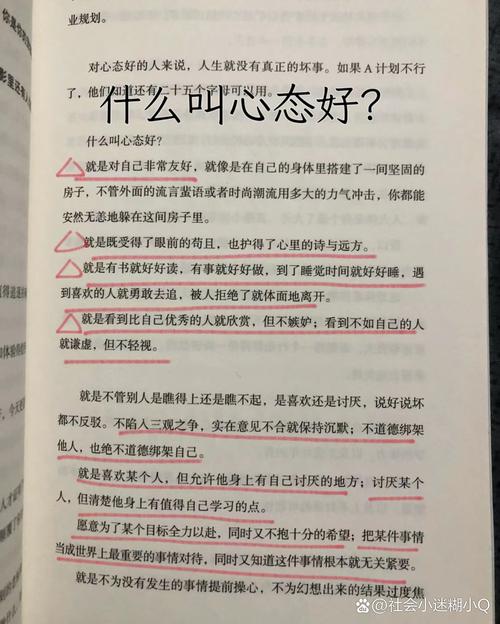 业规划。
对心态好的人来说，人生就没有真正的坏事。如果 A 计划不行
了，他们知道还有二十五个字母可以用。
什么叫心态好？
什么叫心态好？
就是对自己非常友好，就像是在自己的身体里搭建了一间坚固的
房子，不管外面的流言蜚语或者时尚潮流用多大的力气冲击，你都能
安然无恙地躲在这间房子里。
就是既受得了眼前的苟且，也护得了心里的诗与远方。
就是有书就好好读，有事就好好做，到了睡觉时间就好好睡，遇
到喜欢的人就勇敢去追，被人拒绝了就体面地离开。
就是看到比自己优秀的人就欣赏，但不嫉妒；看到不如自己的人
就谦虚，但不轻视。
就是不管别人是瞧得上还是瞧不起，是喜欢还是讨厌，说好说坏
都不反驳。不陷入三观之争，实在意见不合就保持沉默；不道德绑架
他人，也绝不道德绑架自己。
就是喜欢某个人，但允许他身上有自己讨厌的地方；讨厌某个
人，但清楚他身上有值得自己学习的点。
愿意为了某个目标全力以赴，同时又不抱十分的希望；把某件事情
当成世界上最重要的事情对待，同时又知道这件事情根本就无关紧要。
就是不为没有发生的事情提前操心，不为幻想出来的结果过度焦
@社会小迷糊小Q